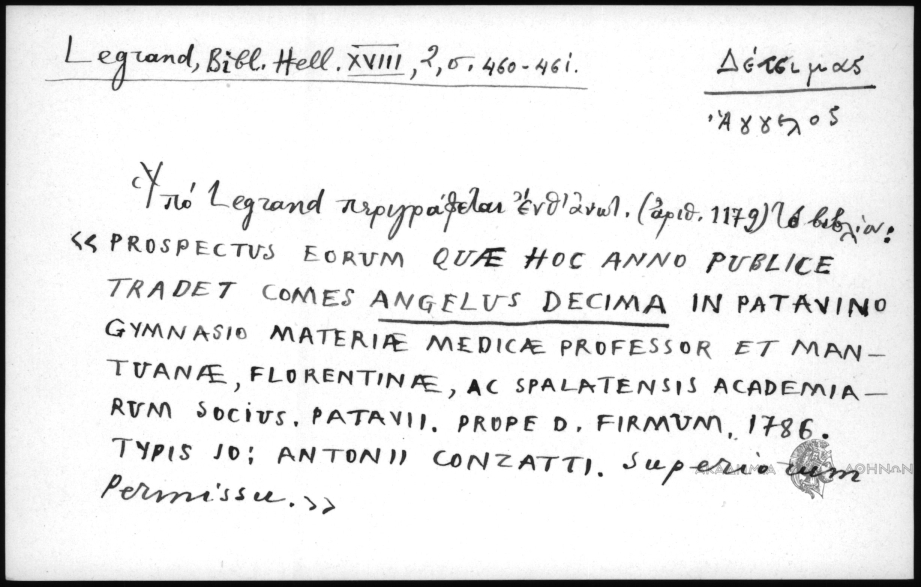 Legrand, Bibl. Hell. XVIII, 2, σ. 460-461.
Δέτσιμας
Ἄγγελος
Ὑπό Legrand περιγράφεται ἐνθ' ἀνωτ. (ἀριθ. 1179) τό βιβλίον:
«PROSPECTUS EORUM QUÆ HOC ANNO PUBLICE
TRADET COMES ANGELUS DECIMA IN PATAVINO
GYMNASIO MATERIÆ MEDICÆ PROFESSOR ET MAN–
TUANÆ, FLORENTINÆ, AC SPALATENSIS ACADEMIA–
RUM SOCIUS. PATAVII. PROPE D. FIRMUM. 1786.
TYPIS JO: ANTONII CONZATTI. Superiorum
Permissu.»
ΑΚΑΔΗΜΙΑ ΑΘΗΝΩΝ